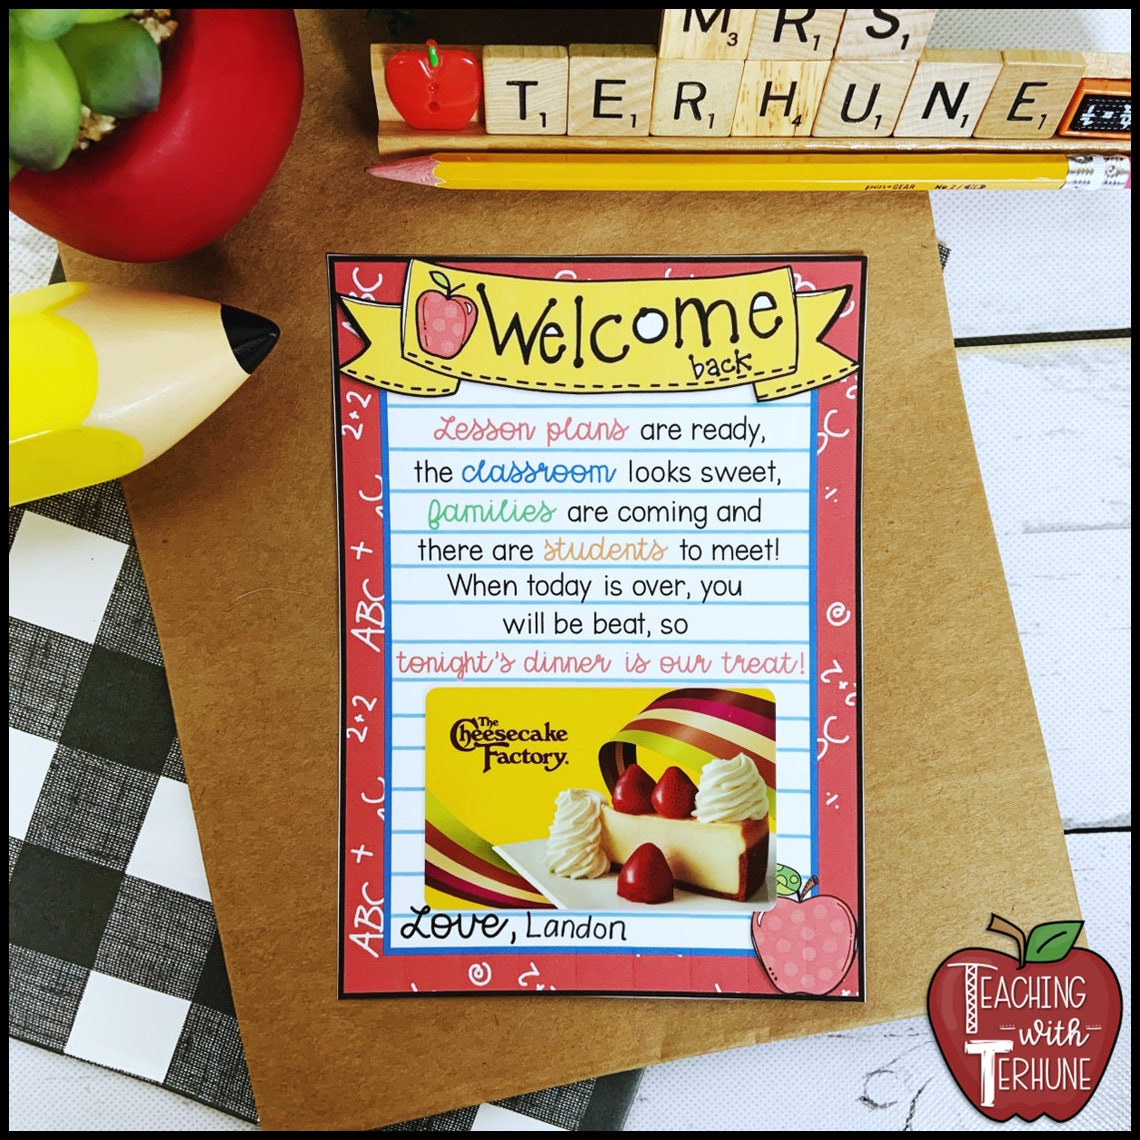 MRS
M3 R1 S1
TERHUNE
T1 E1 R1 H4 U1 N1 E1
pen+GEAR No. 2/HB
Welcome
back
Lesson plans are ready,
the classroom looks sweet,
families are coming and
there are students to meet!
When today is over, you
will be beat, so
tonight's dinner is our treat!
The
Cheesecake
Factory.
Love, Landon
ABC
2+2
ABC +
2+2
ABC +
TEACHING
with
TERHUNE